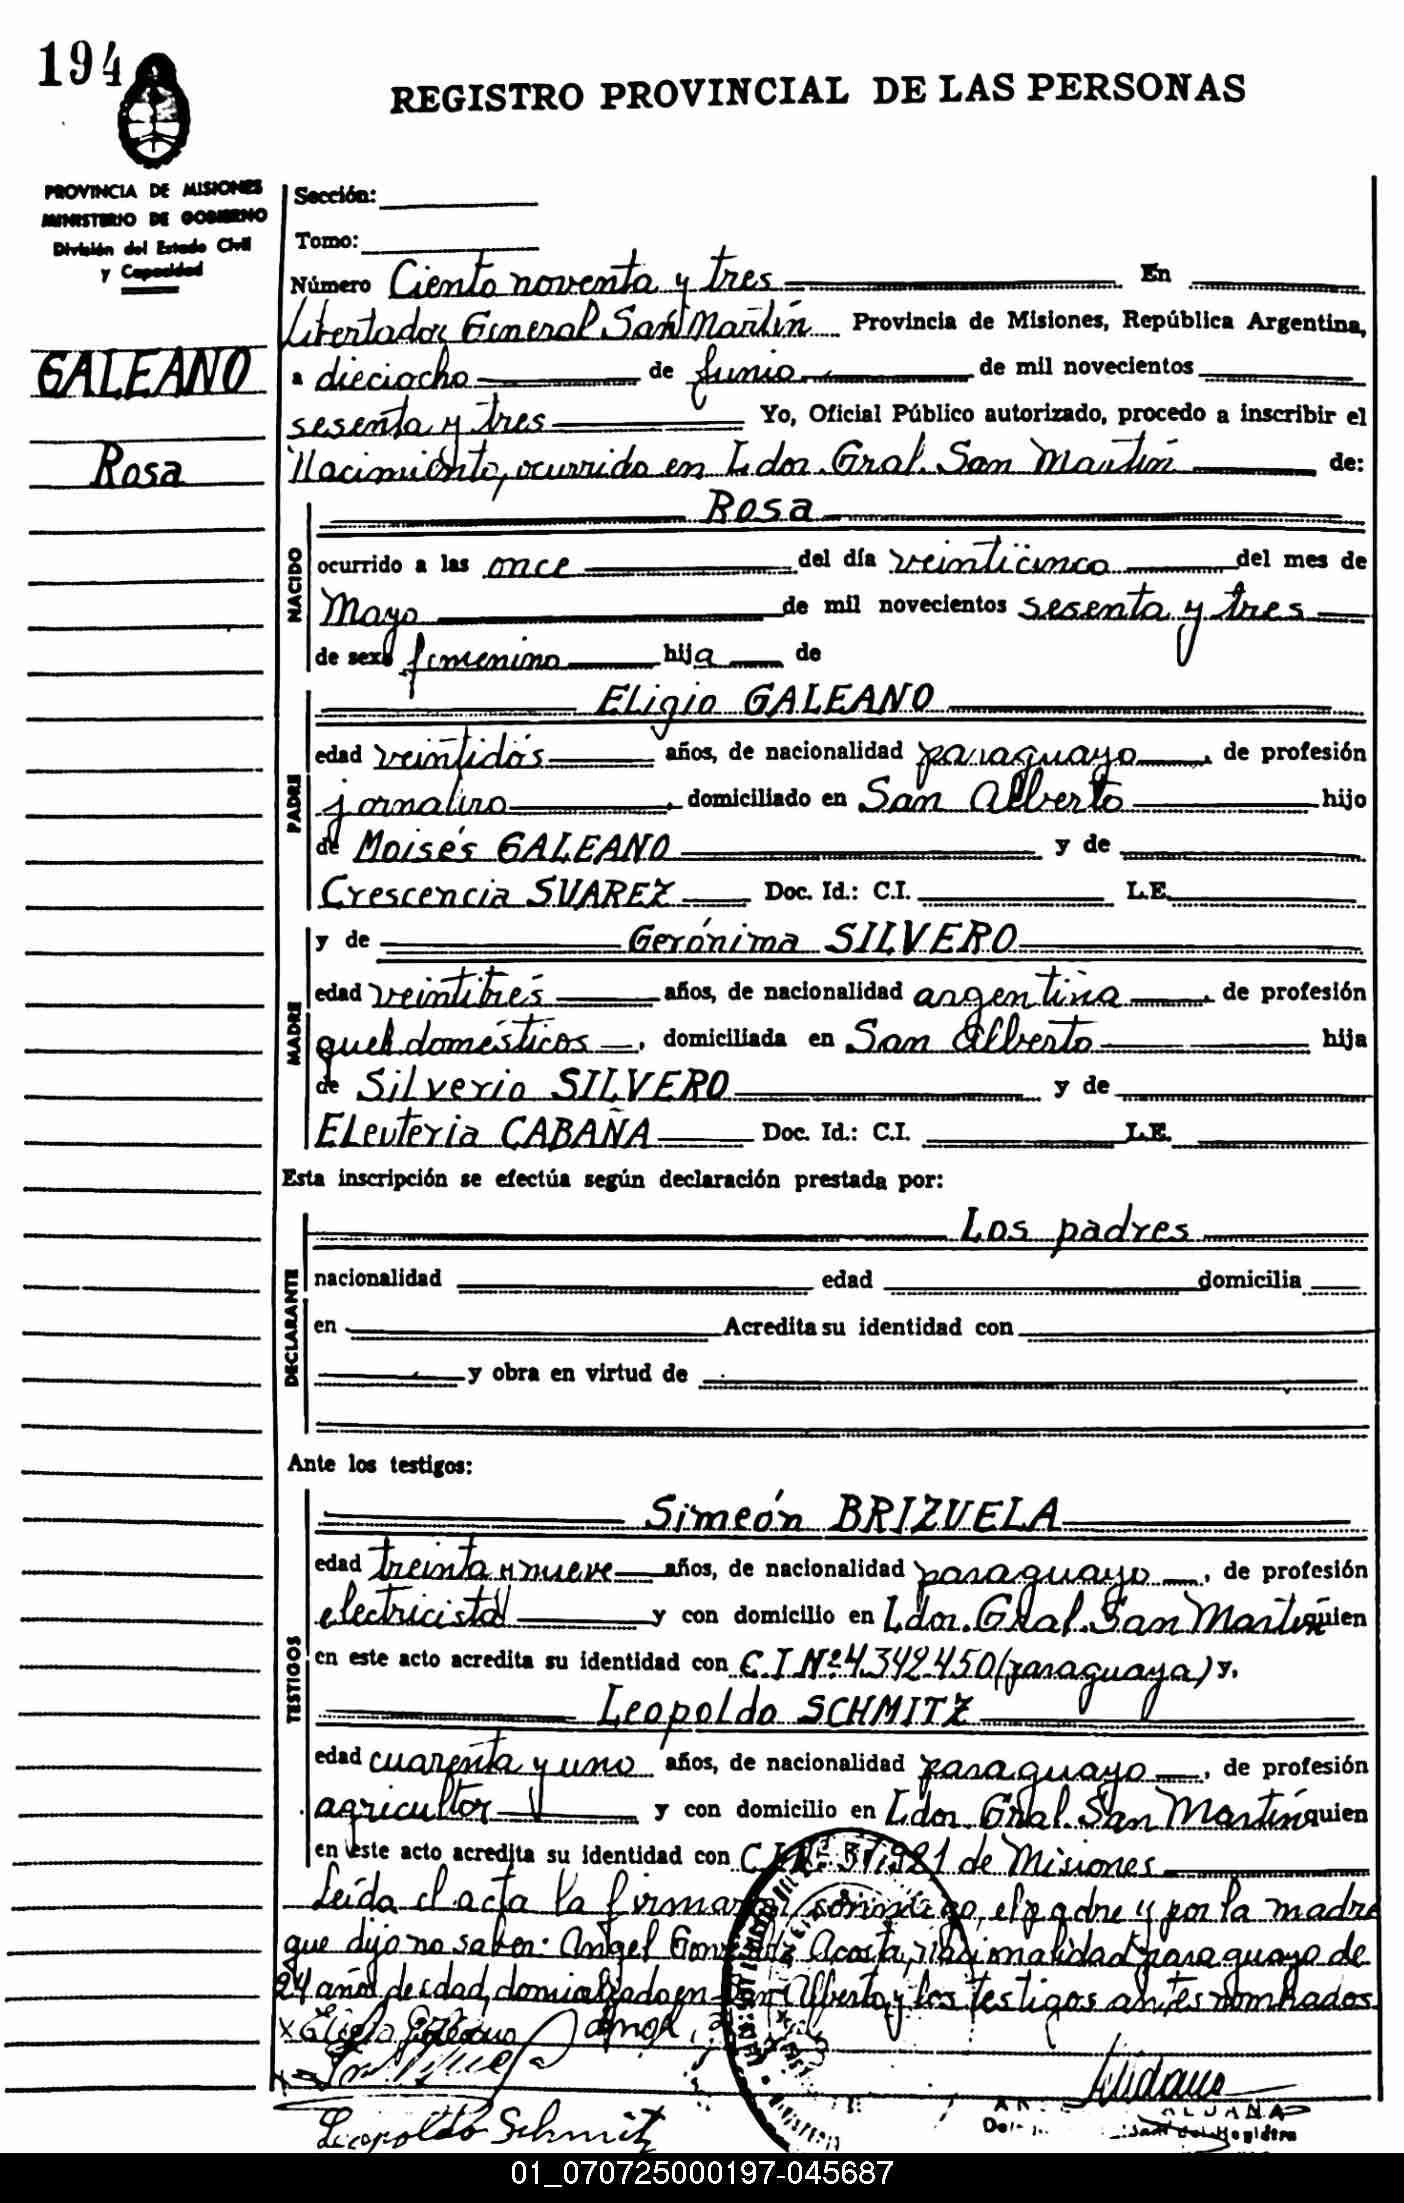 194
REGISTRO PROVINCIAL DE LAS PERSONAS
PROVINCIA DE MISIONES
MINISTERIO DE GOBIERNO
División del Estado Civil
y Capacidad
GALEANO
Rosa
Sección:
Tomo:
Número Ciento noventa y tres En
Libertador General San Martín Provincia de Misiones, República Argentina,
a dieciocho de Junio de mil novecientos
sesenta y tres Yo, Oficial Público autorizado, procedo a inscribir el
Nacimiento, ocurrido en Ldor. Gral. San Martín de:
NACIDO
Rosa
ocurrido a las once del día veinticinco del mes de
Mayo de mil novecientos sesenta y tres
de sexo femenino hija de
PADRE
Eligio GALEANO
edad veintidós años, de nacionalidad paraguayo, de profesión
jornalero, domiciliado en San Alberto hijo
de Moisés GALEANO y de
Crescencia SUAREZ Doc. Id.: C.I. L.E.
MADRE
y de Gerónima SILVERO
edad veintitrés años, de nacionalidad argentina, de profesión
queh. domésticos, domiciliada en San Alberto hija
de Silverio SILVERO y de
Eleuteria CABAÑA Doc. Id.: C.I. L.E.
Esta inscripción se efectúa según declaración prestada por:
DECLARANTE
Los padres
nacionalidad edad domicilia
en Acredita su identidad con
y obra en virtud de
Ante los testigos:
TESTIGOS
Simeón BRIZUELA
edad treinta y nueve años, de nacionalidad paraguayo, de profesión
electricista y con domicilio en Ldor. Gral. San Martín quien
en este acto acredita su identidad con C.I Nº 4.342.450 (paraguaya) y,
Leopoldo SCHMITZ
edad cuarenta y uno años, de nacionalidad paraguayo, de profesión
agricultor y con domicilio en Ldor. Gral. San Martín quien
en este acto acredita su identidad con C.I.Nº 57.981 de Misiones
Leída el acta la firman conmigo, el padre y por la madre
que dijo no saber: Angel González Acosta, nacionalidad paraguayo de
24 años de edad, domiciliado en San Alberto y los testigos antes nombrados.
x Eligio Galeano
Leopoldo Schmitz
01_070725000197-045687